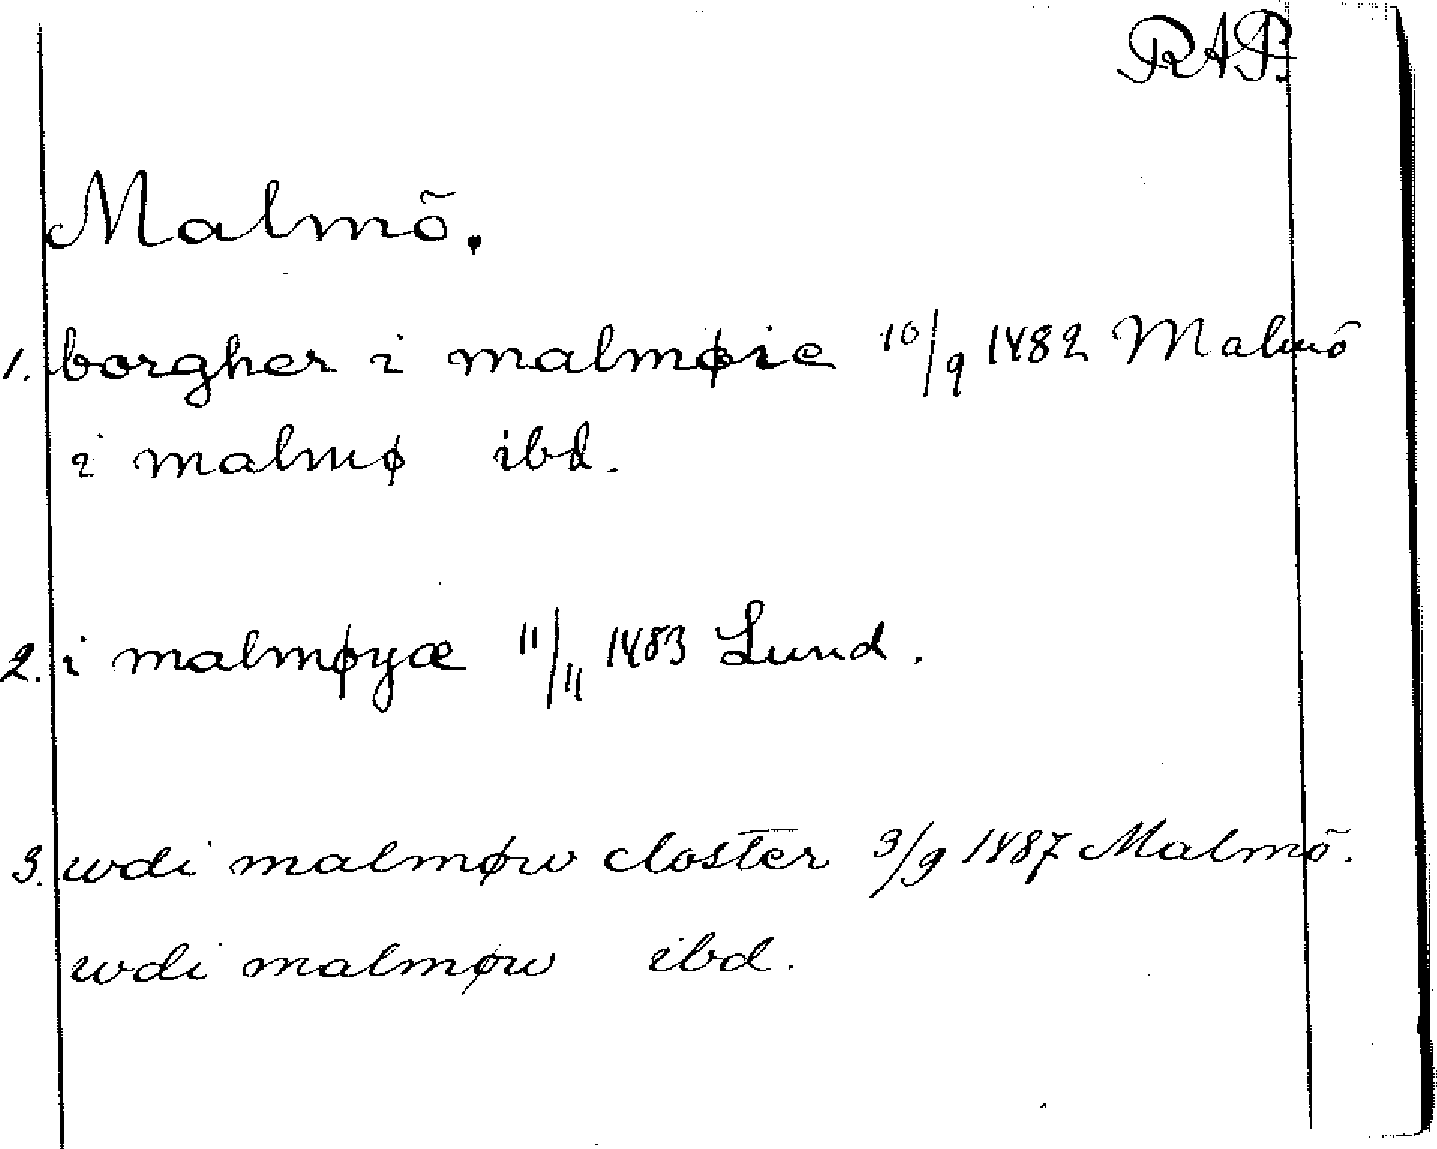 RAP.
Malmö.
1. borgher i malmøie 10/9 1482 Malmö
i malmø ibd.
2. i malmøyæ 11/11 1483 Lund.
3. wdi malmøw closter 3/9 1487 Malmö.
wdi malmøw ibd.